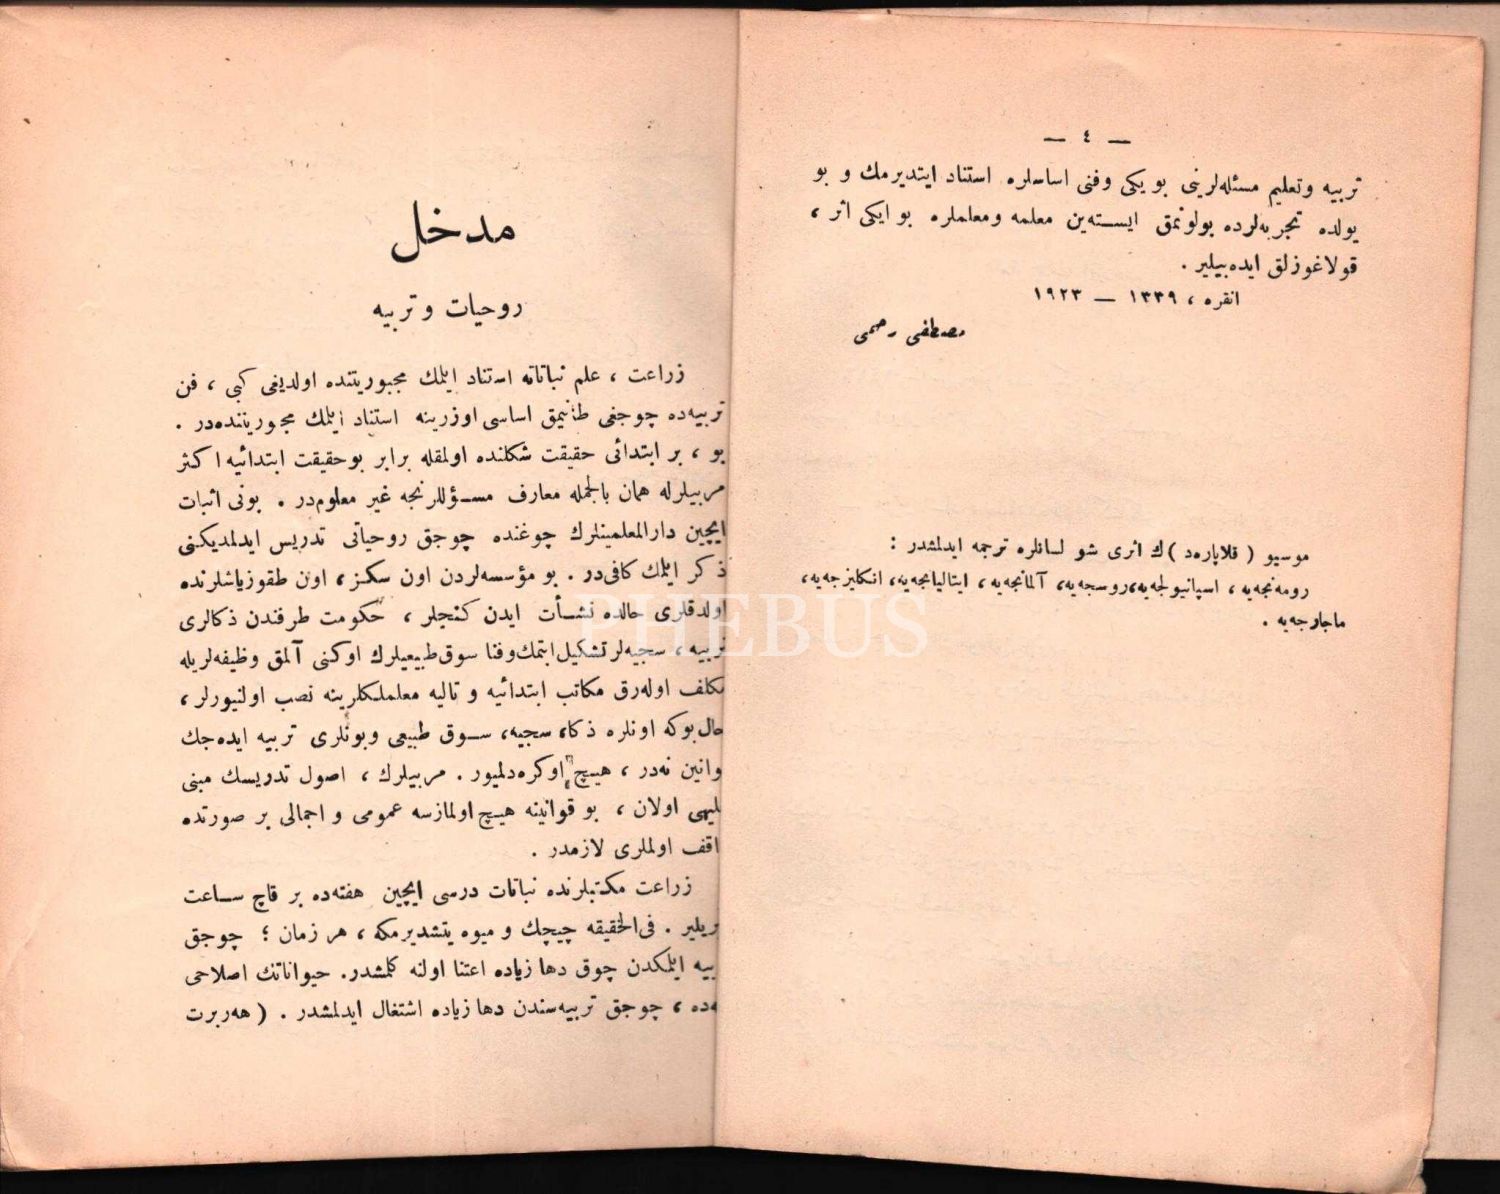 — ٤ —
تربیه وتعلیم مسئله‌لرینی بو یکی وفنی اساسلره استناد ایتدیرمك و بو
یولده تجربه‌لرده بولونمق ایسته‌ین معلمه ومعلملره بو ایکی اثر ،
قولاغوزلق ایده‌بیلیر .
انقره ، ١٣٣٩ — ١٩٢٣
مصطفی رحمی
موسیو ( قلاپاره‌د )ك اثری شو لسانلره ترجمه ایدلمشدر :
رومه‌نجه‌یه ، اسپانیولجه‌یه،روسجه‌یه، آلمانجه‌یه ، ایتالیانجه‌یه، انكلیزجه‌یه،
ماجارجه‌یه .
مدخل
روحیات و تربیه
زراعت ، علم نباتاته استناد ایلمك مجبوریتنده اولدیغی کبی ، فن
تربیه‌ده چوجغی طانیمق اساسی اوزرینه استناد ایلمك مجبوریتنده‌در .
بو ، بر ابتدائی حقیقت شكلنده اولمقله برابر بوحقیقت ابتدائیه اكثر
مربیلرله همان بالجمله معارف مسؤللرنجه غیر معلوم‌در . بونی اثبات
ایچین دارالمعلمینلرك چوغنده چوجق روحیاتی تدریس ایدلمدیكنی
ذكر ایلمك كافی‌در . بو مؤسسه‌لردن اون سكز ، اون طقوزیاشلرنده
اولدقلری حالده نشأت ایدن كنجلر ، حكومت طرفندن ذكالری
تربیه ، سجیه‌لرتشكیل‌ایتمك‌وفنا سوق‌طبیعیلرك اوكنی آلمق وظیفه‌لریله
مكلف اوله‌رق مكاتب ابتدائیه و تالیه معلملكلرینه نصب اولنیورلر ،
حال‌بوكه اونلره ذكا، سجیه، سوق طبیعی وبونلری تربیه ایده‌جك
وانین نه‌در ، هیچ اوكره‌دلمیور . مربیلرك ، اصول تدریسك مبنی
لیهی اولان ، بو قوانینه هیچ اولمازسه عمومی و اجمالی بر صورتده
اقف اولملری لازمدر .
زراعت مكتبلرنده نباتات درسی ایچین هفته‌ده بر قاچ ساعت
ریلیر . فی‌الحقیقه چیچك و میوه یتشدیرمكه ، هر زمان ؛ چوجق
بیه ایلمكدن چوق دها زیاده اعتنا اولنه كلمشدر. حیواناتك اصلاحی
ه‌ده ، چوجق تربیه‌سندن دها زیاده اشتغال ایدلمشدر . ( هه‌ربرت
PHEBUS